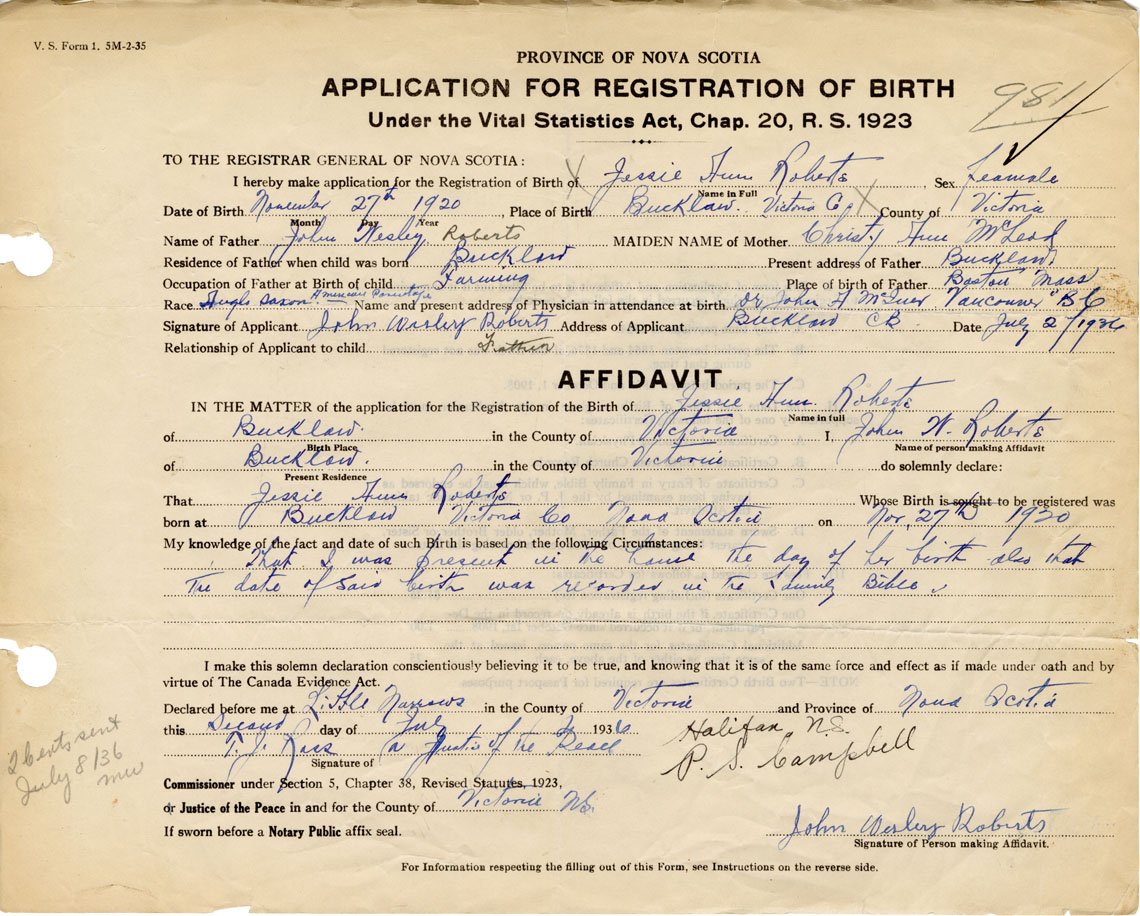 V. S. Form 1. 5M-2-35
PROVINCE OF NOVA SCOTIA
APPLICATION FOR REGISTRATION OF BIRTH
981
Under the Vital Statistics Act, Chap. 20, R. S. 1923
TO THE REGISTRAR GENERAL OF NOVA SCOTIA:
I hereby make application for the Registration of Birth of X Jessie Ann Roberts Sex Feamale
Name in Full
Date of Birth November 27th 1920, Place of Birth Bucklaw. Victoria Co X County of Victoria
Month Day Year
Name of Father John Wesley Roberts MAIDEN NAME of Mother Christy Ann McLeod
Residence of Father when child was born Bucklaw Present address of Father Bucklaw
Occupation of Father at Birth of child Farming Place of birth of Father Boston Mass
Race Anglo Saxon American Parentage Name and present address of Physician in attendance at birth Dr John A Vancouver B C
Signature of Applicant John Wesley Roberts Address of Applicant Bucklaw CB Date July 2/1936
Relationship of Applicant to child Father
AFFIDAVIT
IN THE MATTER of the application for the Registration of the Birth of Jessie Ann Roberts
Name in full
of Bucklaw. in the County of Victoria I, John W. Roberts
Birth Place Name of person making Affidavit
of Bucklaw. in the County of Victoria do solemnly declare:
Present Residence
That Jessie Ann Roberts Whose Birth is sought to be registered was
born at Bucklaw Victoria Co Nova Scotia on Nov. 27th 1920
My knowledge of the fact and date of such Birth is based on the following Circumstances:
That I was present in the house the day of her birth also that
the date of said birth was recorded in the Family Bible.
I make this solemn declaration conscientiously believing it to be true, and knowing that it is of the same force and effect as if made under oath and by
virtue of The Canada Evidence Act.
Declared before me at Little Narrows in the County of Victoria and Province of Nova Scotia
this Second day of July 1936
Halifax N.S.
T. J. Ross a Justice of the Peace
P. S. Campbell
Signature of
2 Certs sent
July 8/36
mw
Commissioner under Section 5, Chapter 38, Revised Statutes, 1923,
or Justice of the Peace in and for the County of Victoria NS.
If sworn before a Notary Public affix seal.
John Wesley Roberts
Signature of Person making Affidavit.
For Information respecting the filling out of this Form, see Instructions on the reverse side.